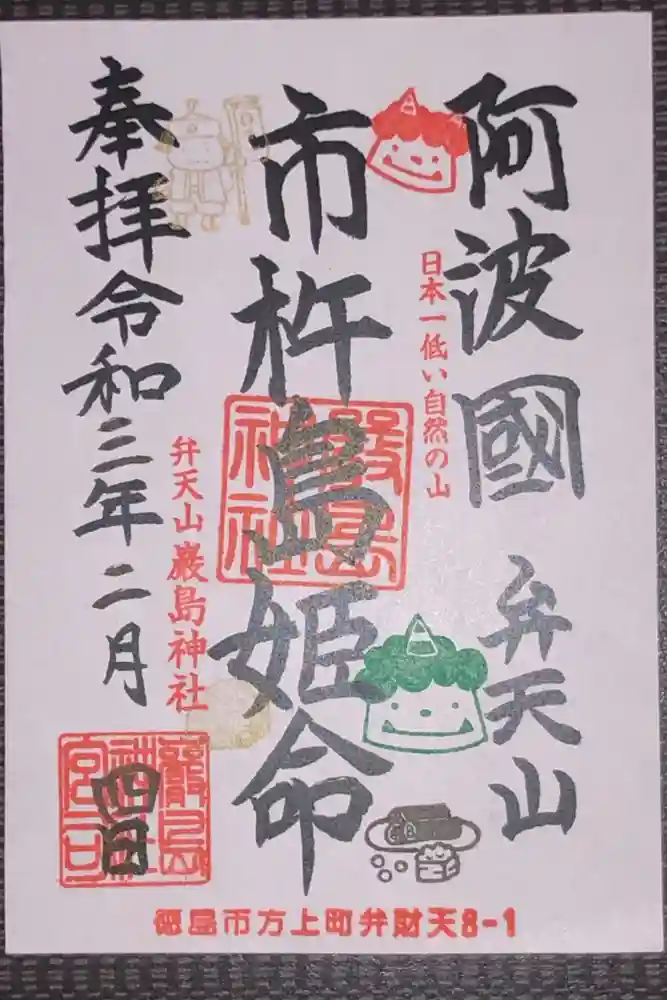 阿波國 弁天山
日本一低い自然の山
市杵島姫命
嚴島
神社
弁天山巌島神社
奉拝令和三年二月
四日
嚴島
神社
宮司
徳島市方上町弁財天8-1